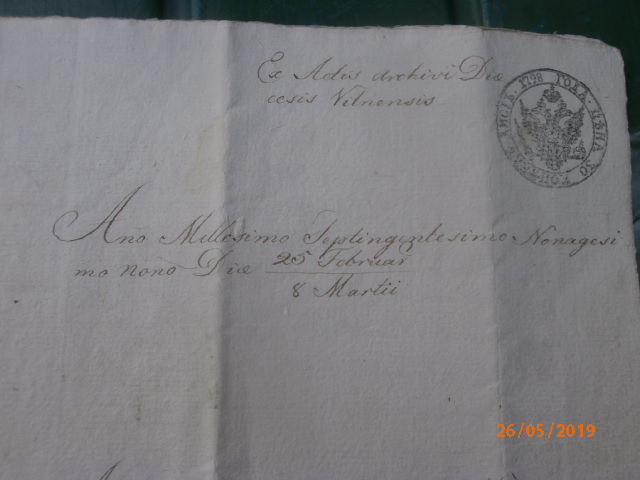 Ex Actis archivi Diæ
cesis Vilnensis
1798 ГОДА. ЦѢНА 30 КОПѢЕКЪ ЛИСТЪ.
Año Millesimo Septingentesimo Nonagesi
mo nono Die 25 Februar
8 Martii
26/05/2019